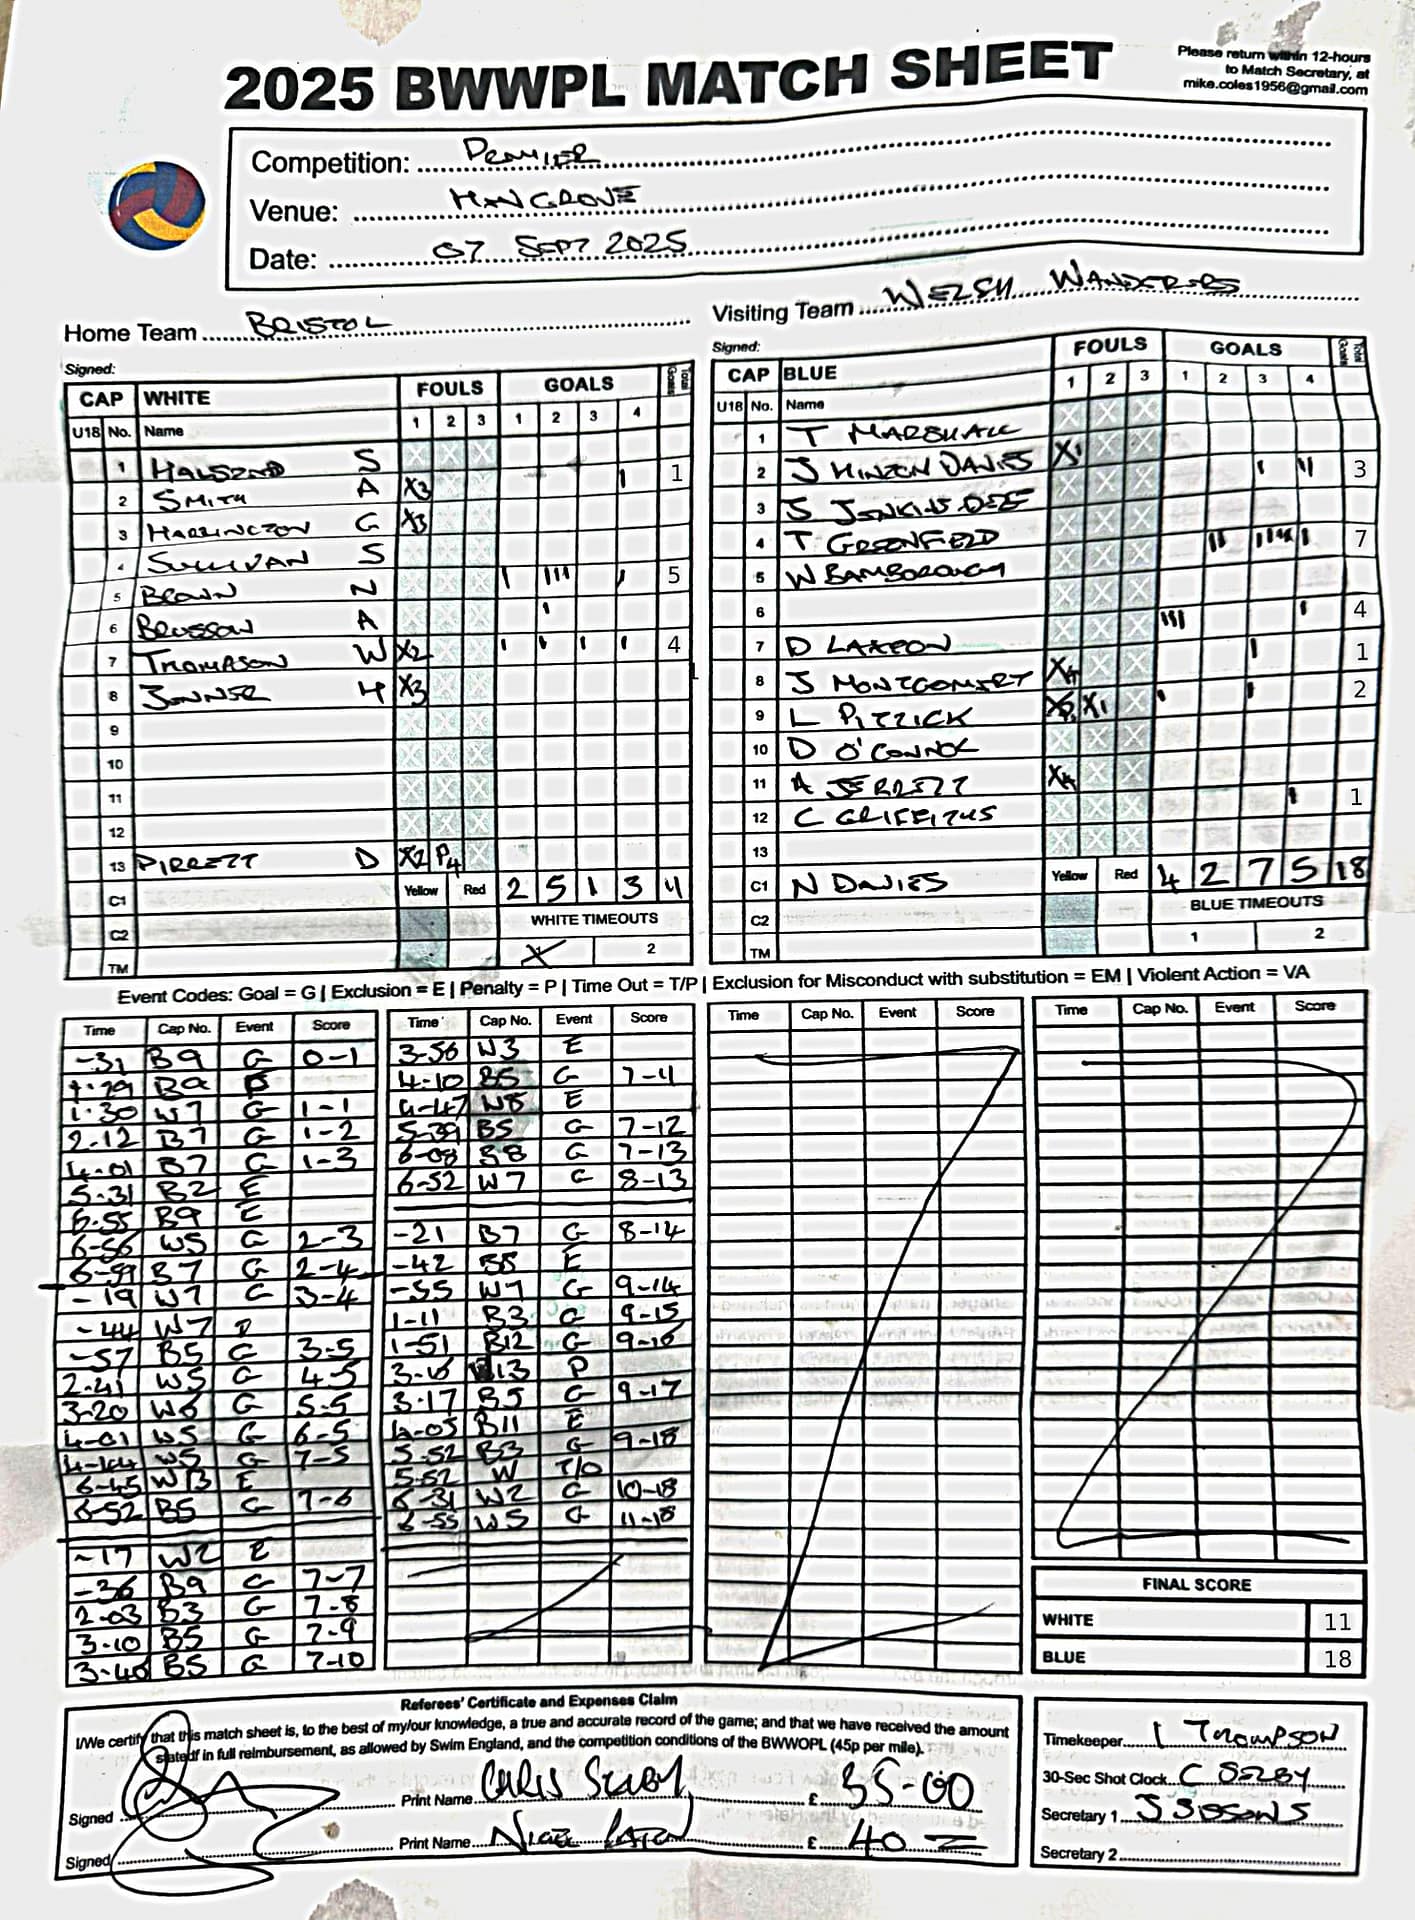 2025 BWWPL MATCH SHEET
Please return within 12-hours
to Match Secretary, at
mike.coles1956@gmail.com
Competition: PREMIER
Venue: MANGROVE
Date: 07 SEPT 2025
Home Team BRISTOL
Visiting Team WELSH WANDERERS
Signed:
CAP WHITE FOULS GOALS Total Goals
U18 No. Name 1 2 3 1 2 3 4
1 HALSZAD S
2 SMITH A X3 1
3 HARRINGTON G X3
4 SULLIVAN S
5 BROWN N 5
6 BRUSSOW A
7 THOMPSON W X2 4
8 JENNER H X3
9
10
11
12
13 PIRRETT D X2 P4
C1 Yellow Red 2 5 1 3 11
C2 WHITE TIMEOUTS
TM X 2
Signed:
CAP BLUE FOULS GOALS Total Goals
U18 No. Name 1 2 3 1 2 3 4
1 T MARSHALL
2 J HINTON DAVIES X1
3 S JENKINS DEE 3
4 T GREENFIELD
5 W BAMBOROUGH 7
6
7 D LAXTON 4
8 J MONTGOMERY X4 1
9 L PITTICK X1 2
10 D O'CONNOR
11 A JERRETT X4
12 C GRIFFITHS 1
13
C1 N DAVIES Yellow Red 4 2 7 5 18
C2 BLUE TIMEOUTS
TM 1 2
Event Codes: Goal = G | Exclusion = E | Penalty = P | Time Out = T/P | Exclusion for Misconduct with substitution = EM | Violent Action = VA
Time Cap No. Event Score
-31 B9 G 0-1
1.29 B9 E
1.30 W7 G 1-1
2-12 B7 G 1-2
4-01 B7 G 1-3
5-31 B2 E
6-55 B9 E
6-56 W5 G 2-3
6-59 B7 G 2-4
-19 W7 G 3-4
-44 W7 E
-57 B5 G 3-5
2-41 W5 G 4-5
3-20 W6 G 5-5
4-01 W5 G 6-5
4-44 W5 G 7-5
6-45 W13 E
6-52 B5 G 7-6
-17 W2 E
-36 B9 G 7-7
2-03 B3 G 7-8
3-10 B5 G 7-9
3-40 B5 G 7-10
Time Cap No. Event Score
3-56 W3 E
4-10 B5 G 7-11
4-47 W8 E
5-39 B5 G 7-12
6-08 B8 G 7-13
6-52 W7 G 8-13
-21 B7 G 8-14
-42 B8 E
-55 W7 G 9-14
1-11 B3 G 9-15
1-51 B12 G 9-16
3-16 W13 P
3-17 B5 G 9-17
4-05 B11 E
5-52 B3 G 9-18
5-52 W T/O
6-31 W2 G 10-18
6-55 W5 G 11-18
Time Cap No. Event Score
Time Cap No. Event Score
FINAL SCORE
WHITE 11
BLUE 18
Referees' Certificate and Expenses Claim
I/We certify that this match sheet is, to the best of my/our knowledge, a true and accurate record of the game; and that we have received the amount
stated in full reimbursement, as allowed by Swim England, and the competition conditions of the BWWOPL (45p per mile).
Signed Print Name CHRIS SELBY £ 35-00
Signed Print Name NIGEL £ 40
Timekeeper I THOMPSON
30-Sec Shot Clock C SELBY
Secretary 1 J SISSONS
Secretary 2